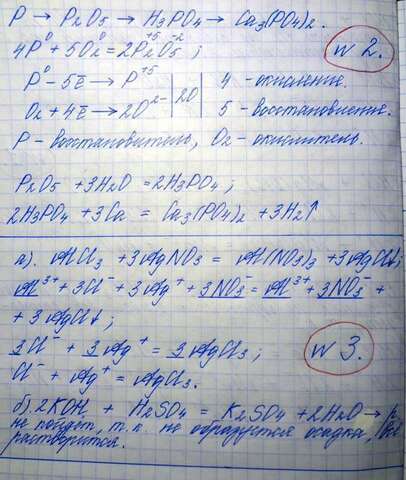 P → P₂O₅ → H₃PO₄ → Ca₃(PO₄)₂.
4P⁰ + 5O₂⁰ = 2P₂⁺⁵O₅⁻² ;
№ 2.
P⁰ - 5ē → P⁺⁵ | 20 | 4 - окисление.
O₂ + 4ē → 2O²⁻ | 5 - восстановление.
P - восстановитель, O₂ - окислитель.
P₂O₅ + 3H₂O = 2H₃PO₄;
2H₃PO₄ + 3Ca = Ca₃(PO₄)₂ + 3H₂↑
а). AlCl₃ + 3AgNO₃ = Al(NO₃)₃ + 3AgCl↓;
Al³⁺ + 3Cl⁻ + 3Ag⁺ + 3NO₃⁻ = Al³⁺ + 3NO₃⁻ +
+ 3AgCl↓ ;
№ 3.
3Cl⁻ + 3Ag⁺ = 3AgCl₃ ;
Cl⁻ + Ag⁺ = AgCl₃.
б). 2KOH + H₂SO₄ = K₂SO₄ + 2H₂O →
не пойдет, т.к. не образуется осадка,
растворится.